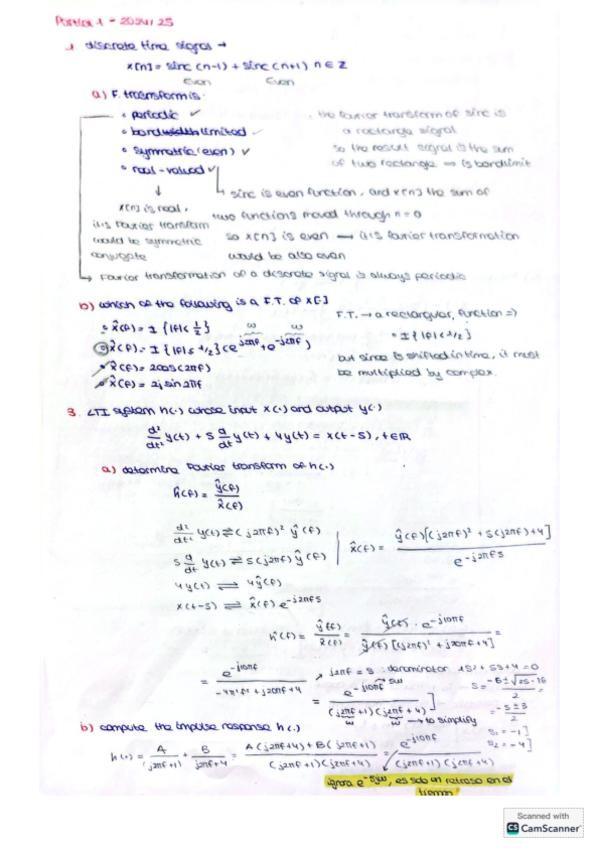 Parcial 1 - 2024/25
1 discrete time signal →
x[n] = sinc (n-1) + sinc (n+1) n ∈ Z
even even
a) F. transform is:
• periodic ✓
• bandwidth limited ✓
• symmetric (even) ✓
• real-valued ✓
the fourier transform of sinc is
a rectangle signal
so the result signal is the sum
of two rectangle ⇒ is bandlimit
sinc is even function, and x[n] the sum of
two functions moved through n=0
so x[n] is even → its fourier transformation
would be also even
x[n] is real,
its Fourier transform
would be symmetric
conjugate
→ Fourier transformation of a discrete signal is always periodic
b) which of the following is a F.T. of x[·]
• x̂(f) = 1 {|f| < 1/2}
• x̂(f) = 1 {|f| ≤ 1/2} (e^{j2πf} + e^{-j2πf})
w w
• x̂(f) = 2cos(2πf)
• x̂(f) = 2j sin 2πf
F.T. → a rectangular, function ⇒
= 1 {|f| < 1/2}
but since is shifted in time, it must
be multiplied by complex.
3. LTI system h(·) whose input x(·) and output y(·)
d²/dt² y(t) + 5 d/dt y(t) + 4y(t) = x(t-5), t∈R
a) determine Fourier transform of h(·)
ĥ(f) = ŷ(f)/x̂(f)
d²/dt² y(t) ⇌ (j2πf)² ŷ(f)
5 d/dt y(t) ⇌ 5(j2πf) ŷ(f)
4y(t) ⇌ 4ŷ(f)
x(t-5) ⇌ x̂(f) e^{-j2πf5}
x̂(f) = ŷ(f)[(j2πf)² + 5(j2πf)+4] / e^{-j2πf5}
ĥ(f) = ŷ(f)/x̂(f) = ŷ(f) · e^{-j10πf} / ŷ(f) [(j2πf)² + j20πf+4] =
= e^{-j10πf} / -4π²f² + j20πf+4
→ j2πf = s : denominator 1s² + 5s+4 = 0
= e^{-j10πf} / (j2πf+1)(j2πf+4)
5w
w w → to simplify
s = -5±√25-16 / 2 =
= -5±3 / 2
s₁ = -1
s₂ = -4
b) compute the impulse response h(·)
h(·) = A/(j2πf+1) + B/j2πf+4 = A(j2πf+4)+B(j2πf+1) / (j2πf+1)(j2πf+4) = e^{-j10πf} / (j2πf+1)(j2πf+4)
ignora e^{-5jw}, es solo un retraso en el
tiempo
Scanned with
CS CamScanner